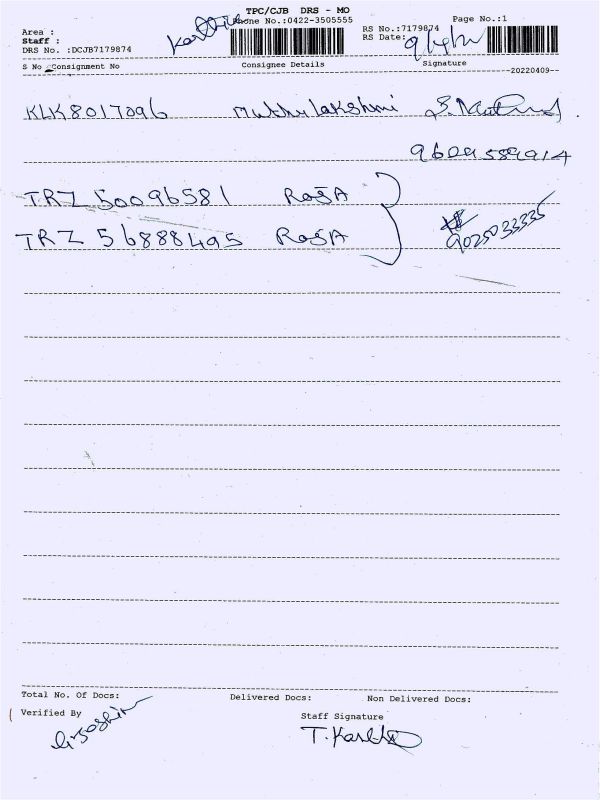 TPC/CJB DRS - MO
Phone No.:0422-3505555
Page No.:1
Area :
RS No.:7179874
Staff :
RS Date:
DRS No. :DCJB7179874
S No Consignment No Consignee Details Signature
--20220409--
KLK8017096 Muthulakshmi
9629589914
TRZ 50096581 RajA
TRZ 56888495 RajA
9025033335
Total No. Of Docs: Delivered Docs: Non Delivered Docs:
Verified By
Staff Signature